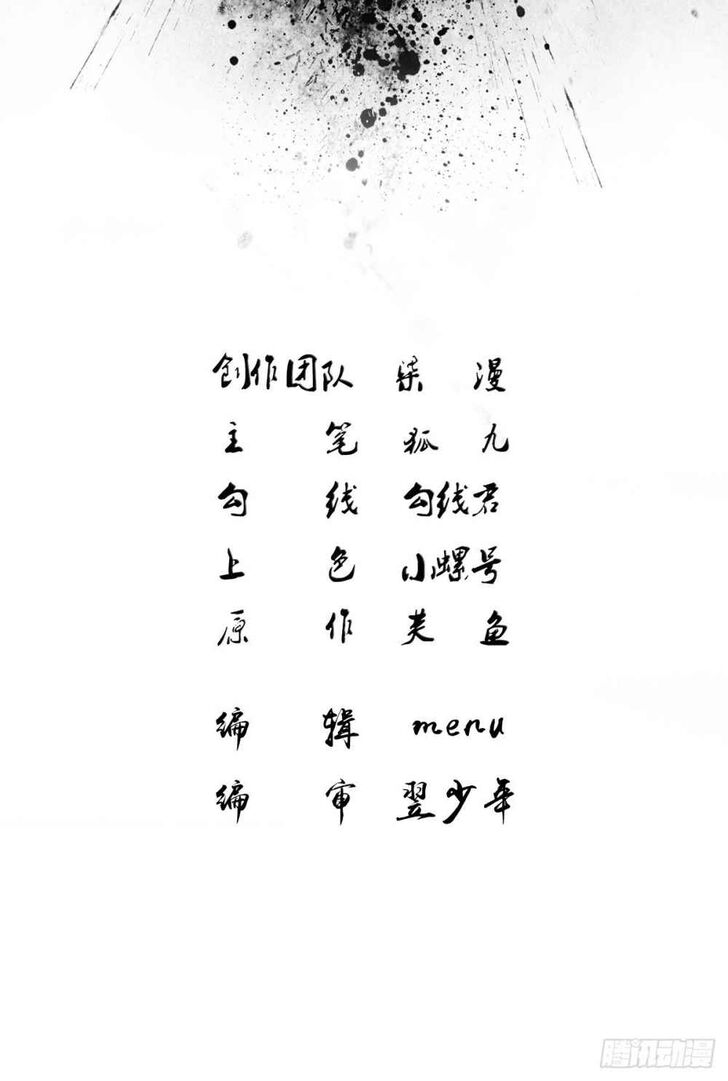 创作团队 柒漫
主笔 狐九
勾线 勾线君
上色 小螺号
原作 芙鱼
编辑 menu
编审 翌少年
腾讯动漫